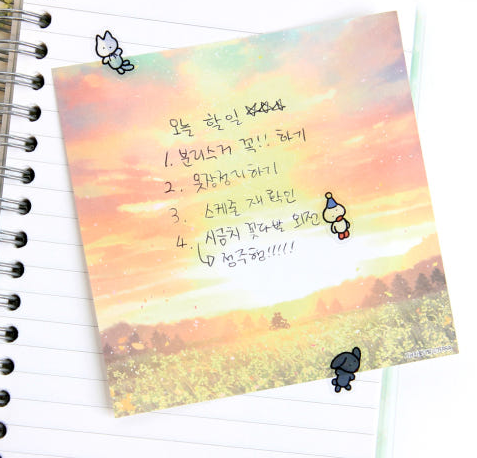 오늘 할일 ☆☆☆
1. 분리수거 꼭!! 하기
2. 옷장정리하기
3. 스케줄 재확인
4. 시금치 꽃다발 외전
↳ 정주행!!!!!